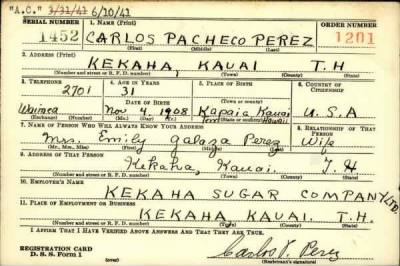 "A.C." 3/31/41 6/10/41
SERIAL NUMBER 1. NAME (Print) ORDER NUMBER
1452 CARLOS PACHECO PEREZ 1201
(First) (Middle) (Last)
2. ADDRESS (Print)
KEKAHA, KAUAI T.H
(Number and street or R. F. D. number) (Town) (County) (State)
3. TELEPHONE 4. AGE IN YEARS 5. PLACE OF BIRTH 6. COUNTRY OF CITIZENSHIP
2701 31 Kapaia Kauai
DATE OF BIRTH (Town or county)
Waimea Nov 4 1908 Hawaii U.S.A
(Exchange) (Number) (Mo.) (Day) (Yr.) (State or country)
7. NAME OF PERSON WHO WILL ALWAYS KNOW YOUR ADDRESS 8. RELATIONSHIP OF THAT PERSON
Mrs. Emily Perez Wife
(Mr., Mrs., Miss) (First) (Middle) (Last)
9. ADDRESS OF THAT PERSON
Kekaha, Kauai. T. H
(Number and street or R. F. D. number) (Town) (County) (State)
10. EMPLOYER'S NAME
KEKAHA SUGAR COMPANY LTD.
11. PLACE OF EMPLOYMENT OR BUSINESS
KEKAHA, KAUAI. T.H.
(Number and street or R. F. D. number) (Town) (County) (State)
I AFFIRM THAT I HAVE VERIFIED ABOVE ANSWERS AND THAT THEY ARE TRUE.
REGISTRATION CARD
D. S. S. Form 1 Carlos P. Perez
(Registrant's signature)